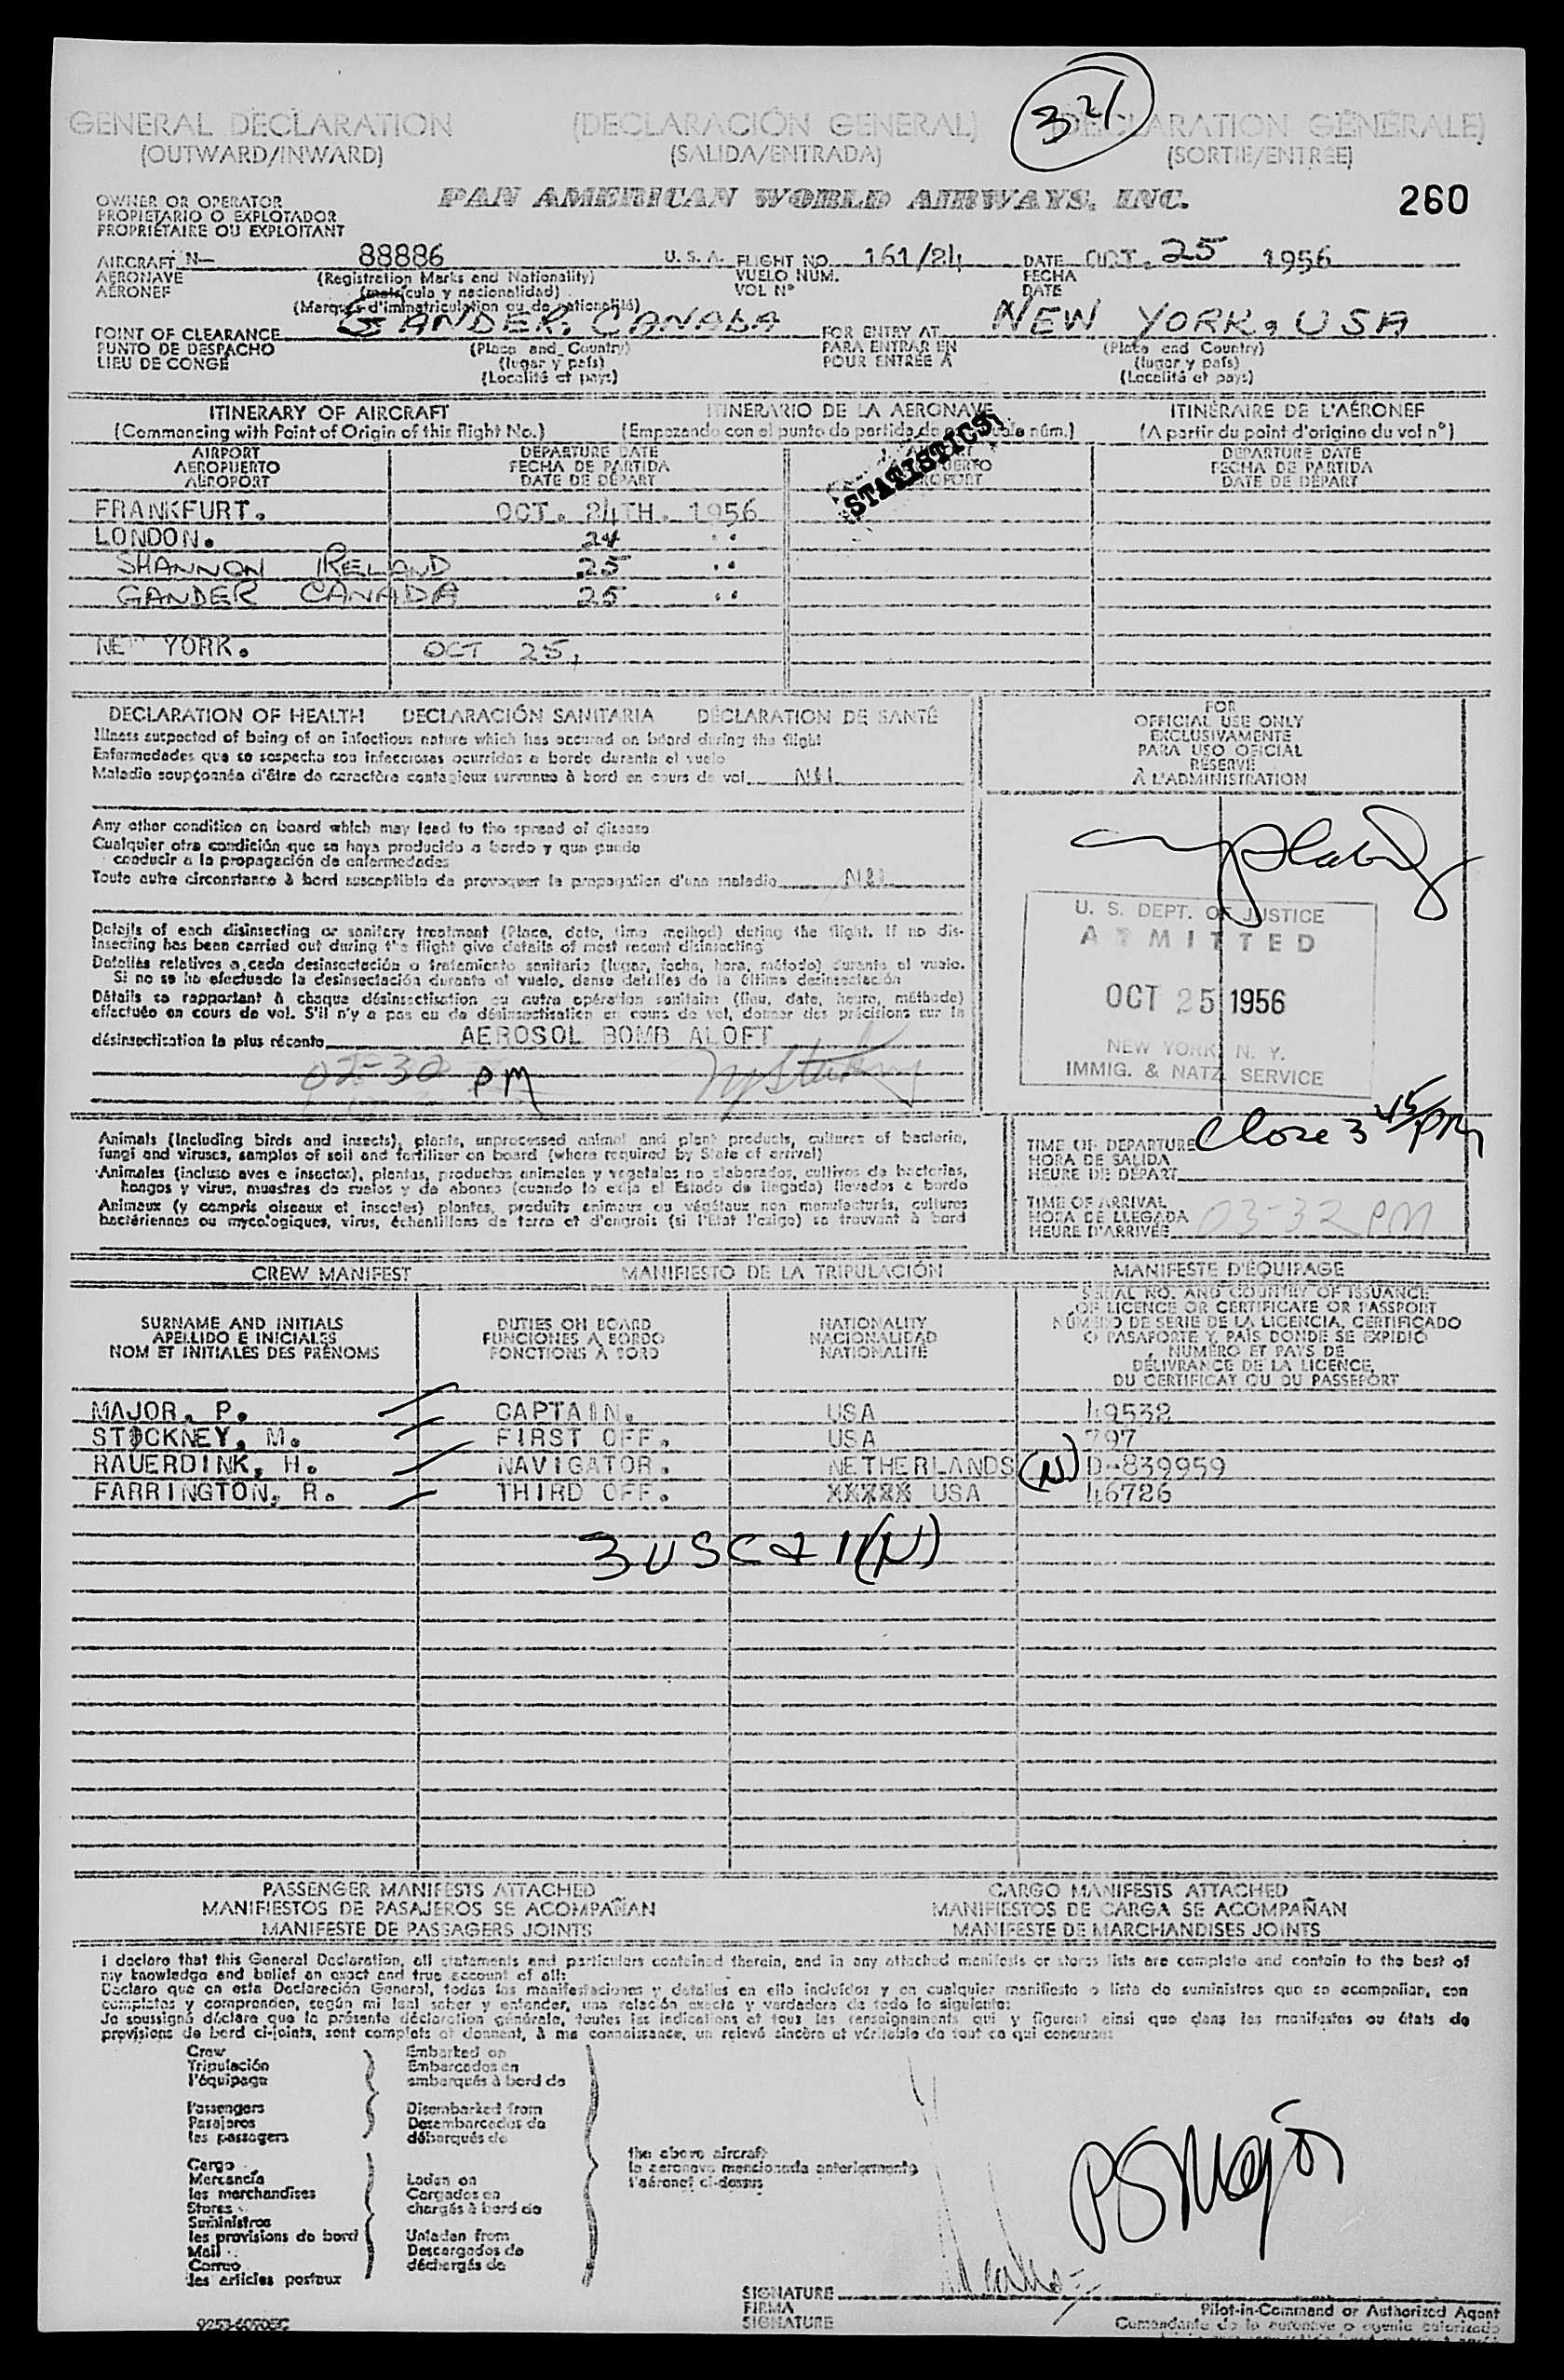 321
GENERAL DECLARATION (DECLARACIÓN GENERAL) (DÉCLARATION GÉNÉRALE)
(OUTWARD/INWARD) (SALIDA/ENTRADA) (SORTIE/ENTRÉE)
OWNER OR OPERATOR PAN AMERICAN WORLD AIRWAYS, INC. 260
PROPIETARIO O EXPLOTADOR
PROPRIÉTAIRE OU EXPLOITANT
AIRCRAFT N- 88886 U. S. A. FLIGHT NO. 161/24 DATE OCT. 25 1956
AERONAVE (Registration Marks and Nationality) VUELO NUM. FECHA
AÉRONEF (matrícula y nacionalidad) VOL Nº DATE
(Marques d'immatriculation ou de nationalité)
POINT OF CLEARANCE GANDER, CANADA FOR ENTRY AT NEW YORK, USA
PUNTO DE DESPACHO (Place and Country) PARA ENTRAR EN (Place and Country)
LIEU DE CONGÉ (lugar y país) POUR ENTRÉE À (lugar y país)
(Localité et pays) (Localité et pays)
ITINERARY OF AIRCRAFT ITINERARIO DE LA AERONAVE ITINÉRAIRE DE L'AÉRONEF
(Commencing with Point of Origin of this flight No.) (Empezando con el punto de partida de núm.) (A partir du point d'origine du vol nº)
STATISTICS
AIRPORT DEPARTURE DATE DEPARTURE DATE
AEROPUERTO FECHA DE PARTIDA FECHA DE PARTIDA
AÉROPORT DATE DE DÉPART DATE DE DÉPART
FRANKFURT. OCT. 24TH. 1956
LONDON. 24 ..
SHANNON IRELAND 25 ..
GANDER CANADA 25 ..
NEW YORK. OCT 25,
DECLARATION OF HEALTH DECLARACIÓN SANITARIA DÉCLARATION DE SANTÉ
Illness suspected of being of an infectious nature which has occured on board during the flight
Enfermedades que se sospecha son infecciosas ocurridas a bordo durante el vuelo
Maladie soupçonnée d'être de caractère contagieux survenue à bord en cours de vol Nil
Any other condition on board which may lead to the spread of disease
Cualquier otra condición que se haya producido a bordo y que pueda
conducir a la propagación de enfermedades
Toute autre circonstance à bord susceptible de provoquer la propagation d'une maladie Nil
Details of each disinsecting or sanitary treatment (Place, date, time method) during the flight. If no dis-
insecting has been carried out during the flight give details of most recent disinsecting
Detalles relativos a cada desinsectación o tratamiento sanitario (lugar, fecha, hora, método) durante el vuelo.
Si no se ha efectuado la desinsectación durante el vuelo, dense detalles de la última desinsectación
Détails se rapportant à chaque désinsectisation ou autre opération sanitaire (lieu, date, heure, méthode)
effectuée en cours de vol. S'il n'y a pas eu de désinsectisation en cours de vol, donner des précisions sur la
désinsectisation la plus récente AEROSOL BOMB ALOFT
02-30 PM
FOR
OFFICIAL USE ONLY
EXCLUSIVAMENTE
PARA USO OFICIAL
RÉSERVÉ
À L'ADMINISTRATION
U. S. DEPT. OF JUSTICE
ADMITTED
OCT 25 1956
NEW YORK, N. Y.
IMMIG. & NATZ. SERVICE
Animals (including birds and insects), plants, unprocessed animal and plant products, cultures of bacteria,
fungi and viruses, samples of soil and fertilizer on board (where required by State of arrival)
Animales (incluso aves e insectos), plantas, productos animales y vegetales no elaborados, cultivos de bacterias,
hongos y virus, muestras de suelos y de abonos (cuando lo exija el Estado de llegada) llevados a bordo
Animaux (y compris oiseaux et insectes) plantes, produits animaux ou végétaux non manufacturés, cultures
bactériennes ou mycologiques, virus, échantillons de terre et d'engrais (si l'État l'exige) se trouvant à bord
TIME OF DEPARTURE Close 3 45/PM
HORA DE SALIDA
HEURE DE DÉPART
TIME OF ARRIVAL
HORA DE LLEGADA
HEURE D'ARRIVÉE 03-32 PM
CREW MANIFEST MANIFIESTO DE LA TRIPULACIÓN MANIFESTE D'ÉQUIPAGE
SURNAME AND INITIALS
APELLIDO E INICIALES
NOM ET INITIALES DES PRÉNOMS
DUTIES ON BOARD
FUNCIONES A BORDO
FONCTIONS À BORD
NATIONALITY
NACIONALIDAD
NATIONALITÉ
SERIAL NO. AND COUNTRY OF ISSUANCE
OF LICENCE OR CERTIFICATE OR PASSPORT
NÚMERO DE SERIE DE LA LICENCIA, CERTIFICADO
O PASAPORTE Y PAÍS DONDE SE EXPIDIÓ
NUMÉRO ET PAYS DE
DÉLIVRANCE DE LA LICENCE,
DU CERTIFICAT OU DU PASSEPORT
MAJOR. P. CAPTAIN. USA 49532
STOCKNEY, M. FIRST OFF. USA 797
RAUERDINK, H. NAVIGATOR. NETHERLANDS (N) D-839959
FARRINGTON, R. THIRD OFF. XXXXX USA 46726
3 USC & 1(N)
PASSENGER MANIFESTS ATTACHED CARGO MANIFESTS ATTACHED
MANIFIESTOS DE PASAJEROS SE ACOMPAÑAN MANIFIESTOS DE CARGA SE ACOMPAÑAN
MANIFESTE DE PASSAGERS JOINTS MANIFESTE DE MARCHANDISES JOINTS
I declare that this General Declaration, all statements and particulars contained therein, and in any attached manifests or stores lists are complete and contain to the best of
my knowledge and belief an exact and true account of all:
Declaro que en esta Declaración General, todas las manifestaciones y detalles en ella incluídos y en cualquier manifiesto o lista de suministros que se acompañan, son
completos y comprenden, según mi leal saber y entender, una relación exacta y verdadera de todo lo siguiente:
Je soussigné déclare que la présente déclaration générale, toutes les indications et tous les renseignements qui y figurent ainsi que dans les manifestes ou états de
provisions de bord ci-joints, sont complets et donnent, à ma connaissance, un relevé sincère et véritable de tout ce qui concerne:
Crew Embarked on
Tripulación Embarcados en
l'équipage embarqués à bord de
Passengers Disembarked from
Pasajeros Desembarcados de
les passagers débarqués de
the above aircraft
la aeronave mencionada anteriormente
l'aéronef ci-dessus
Cargo
Mercancía Laden on
les marchandises Cargados en
Stores chargés à bord de
Suministros
les provisions de bord Unladen from
Mail Descargados de
Correo déchargés de
les articles postaux
PSMajor
SIGNATURE
FIRMA
SIGNATURE
Pilot-in-Command or Authorized Agent
Comandante de la aeronave o agente autorizado